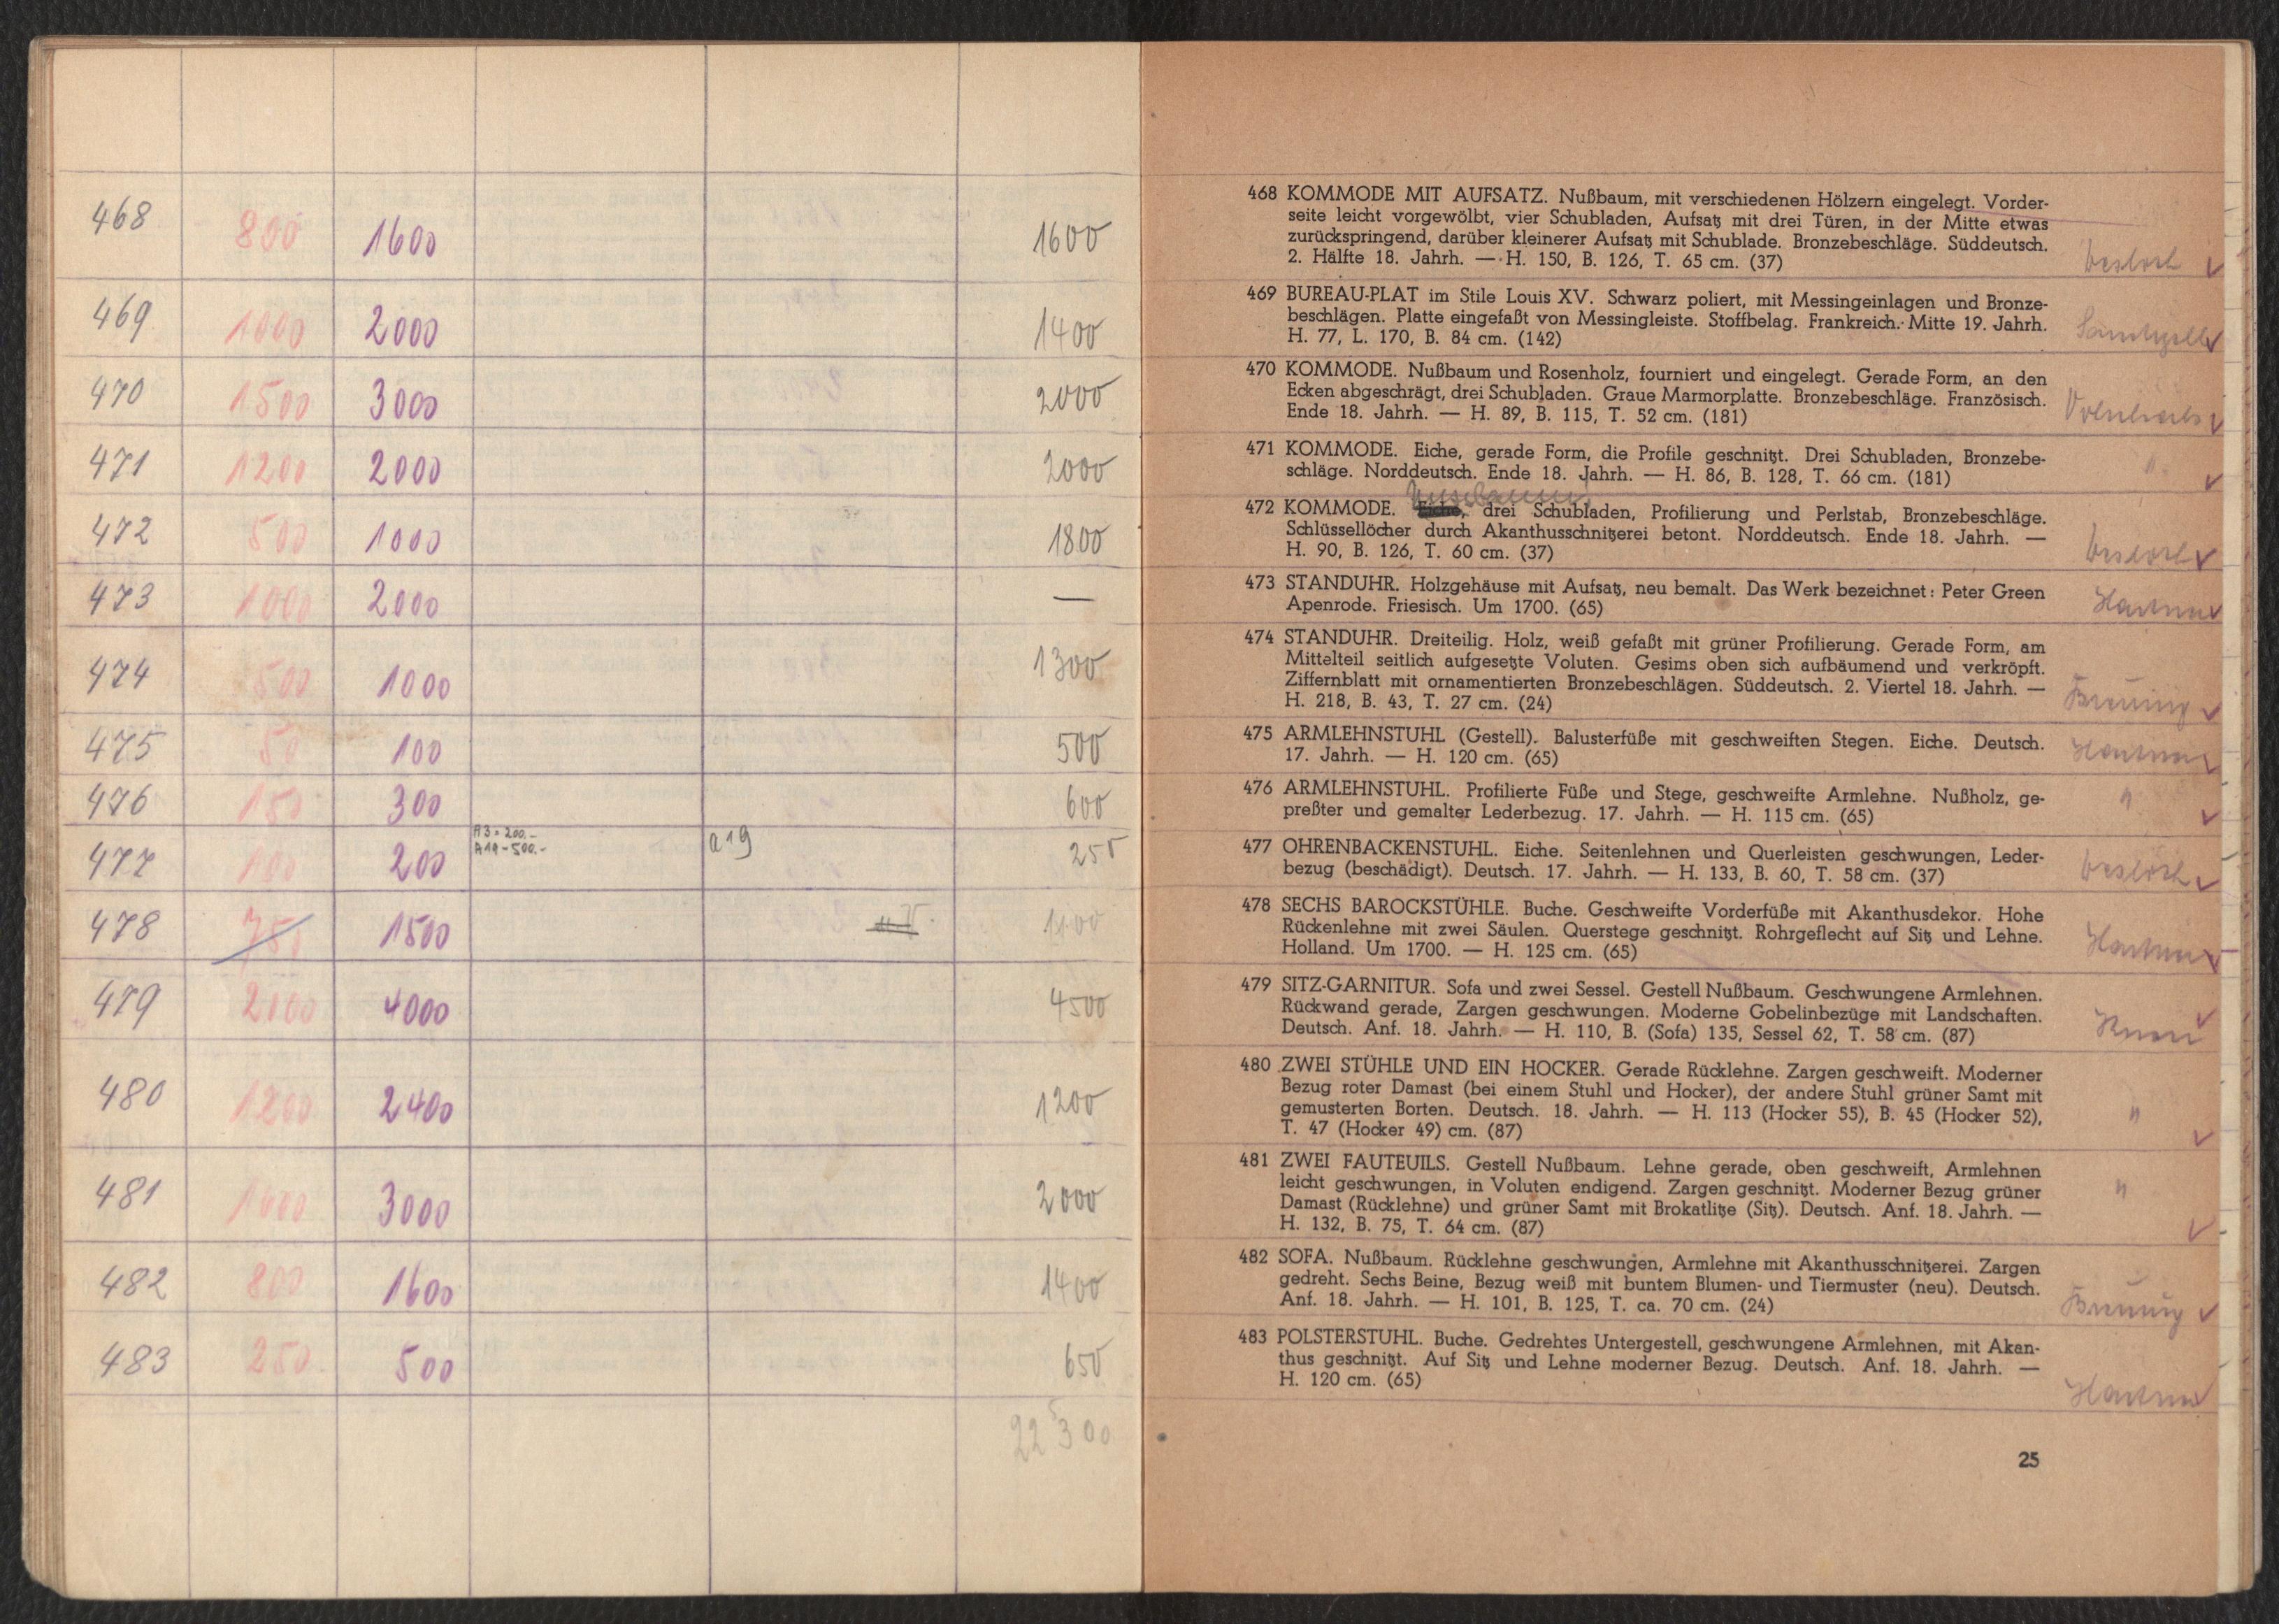 468 800 1600 1600
469 1000 2000 1400
470 1500 3000 2000
471 1200 2000 2000
472 500 1000 1800
473 1000 2000 —
474 500 1000 1300
475 50 100 500
476 150 300 600
A3 = 200.-
A19 - 500.-
477 100 200 a19 250
478 750 1500
479 2000 4000 4500
480 1200 2400 1200
481 3000 2000
482 800 1600 1400
483 250 500 650
468 KOMMODE MIT AUFSATZ. Nußbaum, mit verschiedenen Hölzern eingelegt. Vorder-
seite leicht vorgewölbt, vier Schubladen, Aufsatz mit drei Türen, in der Mitte etwas
zurückspringend, darüber kleinerer Aufsatz mit Schublade. Bronzebeschläge. Süddeutsch.
2. Hälfte 18. Jahrh. — H. 150, B. 126, T. 65 cm. (37)
469 BUREAU-PLAT im Stile Louis XV. Schwarz poliert, mit Messingeinlagen und Bronze-
beschlägen. Platte eingefaßt von Messingleiste. Stoffbelag. Frankreich. Mitte 19. Jahrh.
H. 77, L. 170, B. 84 cm. (142)
470 KOMMODE. Nußbaum und Rosenholz, fourniert und eingelegt. Gerade Form, an den
Ecken abgeschrägt, drei Schubladen. Graue Marmorplatte. Bronzebeschläge. Französisch.
Ende 18. Jahrh. — H. 89, B. 115, T. 52 cm. (181)
471 KOMMODE. Eiche, gerade Form, die Profile geschnitzt. Drei Schubladen, Bronzebe-
schläge. Norddeutsch. Ende 18. Jahrh. — H. 86, B. 128, T. 66 cm. (181) "
472 KOMMODE. Eiche, drei Schubladen, Profilierung und Perlstab, Bronzebeschläge.
Schlüssellöcher durch Akanthusschnitzerei betont. Norddeutsch. Ende 18. Jahrh. —
H. 90, B. 126, T. 60 cm. (37)
473 STANDUHR. Holzgehäuse mit Aufsatz, neu bemalt. Das Werk bezeichnet: Peter Green
Apenrode. Friesisch. Um 1700. (65)
474 STANDUHR. Dreiteilig. Holz, weiß gefaßt mit grüner Profilierung. Gerade Form, am
Mittelteil seitlich aufgesetzte Voluten. Gesims oben sich aufbäumend und verkröpft.
Ziffernblatt mit ornamentierten Bronzebeschlägen. Süddeutsch. 2. Viertel 18. Jahrh. —
H. 218, B. 43, T. 27 cm. (24)
475 ARMLEHNSTUHL (Gestell). Balusterfüße mit geschweiften Stegen. Eiche. Deutsch.
17. Jahrh. — H. 120 cm. (65)
476 ARMLEHNSTUHL. Profilierte Füße und Stege, geschweifte Armlehne. Nußholz, ge- "
preßter und gemalter Lederbezug. 17. Jahrh. — H. 115 cm. (65)
477 OHRENBACKENSTUHL. Eiche. Seitenlehnen und Querleisten geschwungen, Leder-
bezug (beschädigt). Deutsch. 17. Jahrh. — H. 133, B. 60, T. 58 cm. (37)
478 SECHS BAROCKSTÜHLE. Buche. Geschweifte Vorderfüße mit Akanthusdekor. Hohe
Rückenlehne mit zwei Säulen. Querstege geschnitzt. Rohrgeflecht auf Sitz und Lehne.
Holland. Um 1700. — H. 125 cm. (65)
479 SITZ-GARNITUR. Sofa und zwei Sessel. Gestell Nußbaum. Geschwungene Armlehnen.
Rückwand gerade, Zargen geschwungen. Moderne Gobelinbezüge mit Landschaften.
Deutsch. Anf. 18. Jahrh. — H. 110, B. (Sofa) 135, Sessel 62, T. 58 cm. (87)
480 ZWEI STÜHLE UND EIN HOCKER. Gerade Rücklehne. Zargen geschweift. Moderner
Bezug roter Damast (bei einem Stuhl und Hocker), der andere Stuhl grüner Samt mit
gemusterten Borten. Deutsch. 18. Jahrh. — H. 113 (Hocker 55), B. 45 (Hocker 52), "
T. 47 (Hocker 49) cm. (87)
481 ZWEI FAUTEUILS. Gestell Nußbaum. Lehne gerade, oben geschweift, Armlehnen
leicht geschwungen, in Voluten endigend. Zargen geschnitzt. Moderner Bezug grüner "
Damast (Rücklehne) und grüner Samt mit Brokatlitze (Sitz). Deutsch. Anf. 18. Jahrh. —
H. 132, B. 75, T. 64 cm. (87)
482 SOFA. Nußbaum. Rücklehne geschwungen, Armlehne mit Akanthusschnitzerei. Zargen
gedreht. Sechs Beine, Bezug weiß mit buntem Blumen- und Tiermuster (neu). Deutsch.
Anf. 18. Jahrh. — H. 101, B. 125, T. ca. 70 cm. (24)
483 POLSTERSTUHL. Buche. Gedrehtes Untergestell, geschwungene Armlehnen, mit Akan-
thus geschnitzt. Auf Sitz und Lehne moderner Bezug. Deutsch. Anf. 18. Jahrh. —
H. 120 cm. (65)
25